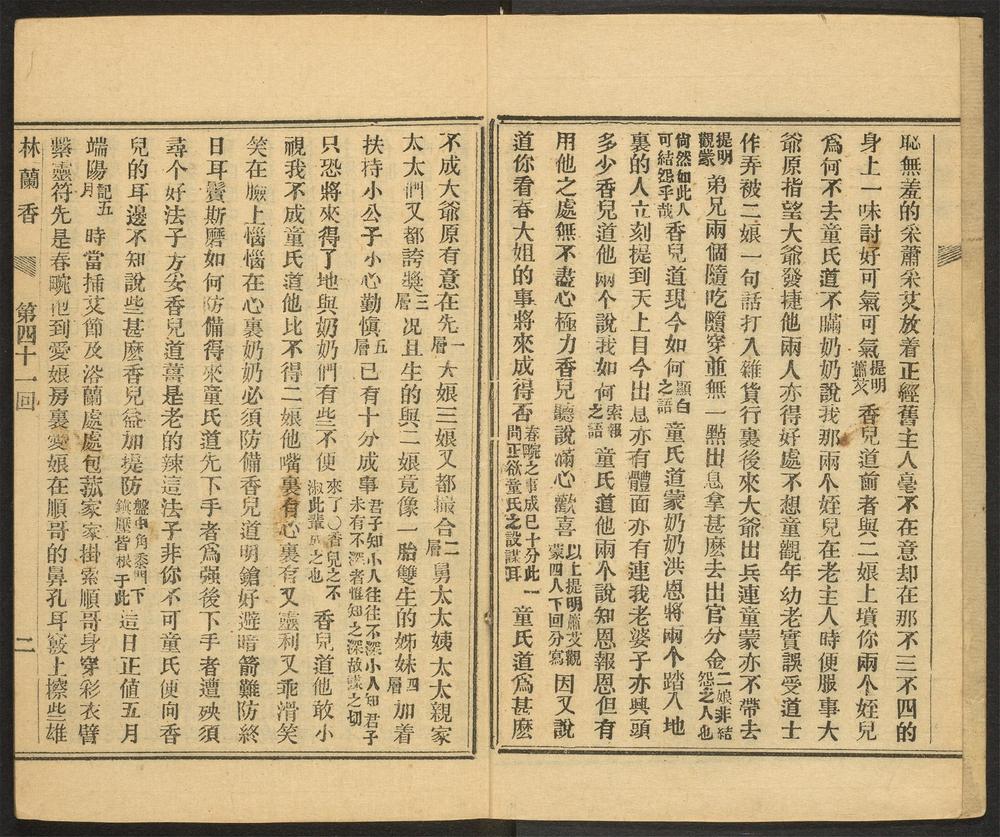 恥無羞的采蕭采艾放着正經舊主人毫不在意却在那不三不四的
身上一味討好可氣可氣提明蕭艾香兒道前者與二娘上墳你兩个姪兒
爲何不去童氏道不瞞奶奶說我那兩个姪兒在老主人時便服事大
爺原指望大爺發捷他兩人亦得好處不想童觀年幼老實誤受道士
作弄被二娘一句話打入雜貨行裏後來大爺出兵連童蒙亦不帶去
提明觀蒙弟兄兩個隨吃隨穿並無一點出息拿甚麽去出官分金二娘非結怨之人也
尙然如此人可結怨乎哉香兒道現今如何顯白之語童氏道蒙奶奶洪恩將兩个踏入地
裏的人立刻提到天上目今出息亦有體面亦有連我老婆子亦興頭
多少香兒道他兩个說我如何索報之語童氏道他兩个說知恩報恩但有
用他之處無不盡心極力香兒聽說滿心歡喜以上提明蕭艾觀蒙四人下回分寫因又說
道你看春大姐的事將來成得否春畹之事成已十分此一問正欲童氏之設謀耳童氏道爲甚麽
不成大爺原有意在先一層大娘三娘又都撮合二層舅太太姨太太親家
太太們又都誇獎三層况且生的與二娘竟像一胎雙生的姊妹四層加着
扶持小公子小心勤愼五層已有十分成事君子知小人往往不深小人知君子未有不深者惟知之深故謀之切
只恐將來得了地與奶奶們有些不便來了〇香兒之不淑此輩成之也香兒道他敢小
視我不成童氏道他比不得二娘他嘴裏有心裏有又靈利又乖滑笑
笑在臉上惱惱在心裏奶奶必須防備香兒道明鎗好避暗箭難防終
日耳鬢斯磨如何防備得來童氏道先下手者爲强後下手者遭殃須
尋个好法子方妥香兒道薑是老的辣這法子非你不可童氏便向香
兒的耳邊不知說些甚麽香兒益加堤防盤中角黍門下皆根于此這日正值五月
端陽記五月時當插艾節及浴蘭處處包菰家家掛索順哥身穿彩衣臂
繫靈符先是春畹抱到愛娘房裏愛娘在順哥的鼻孔耳竅上擦些雄
林蘭香 第四十一回 二